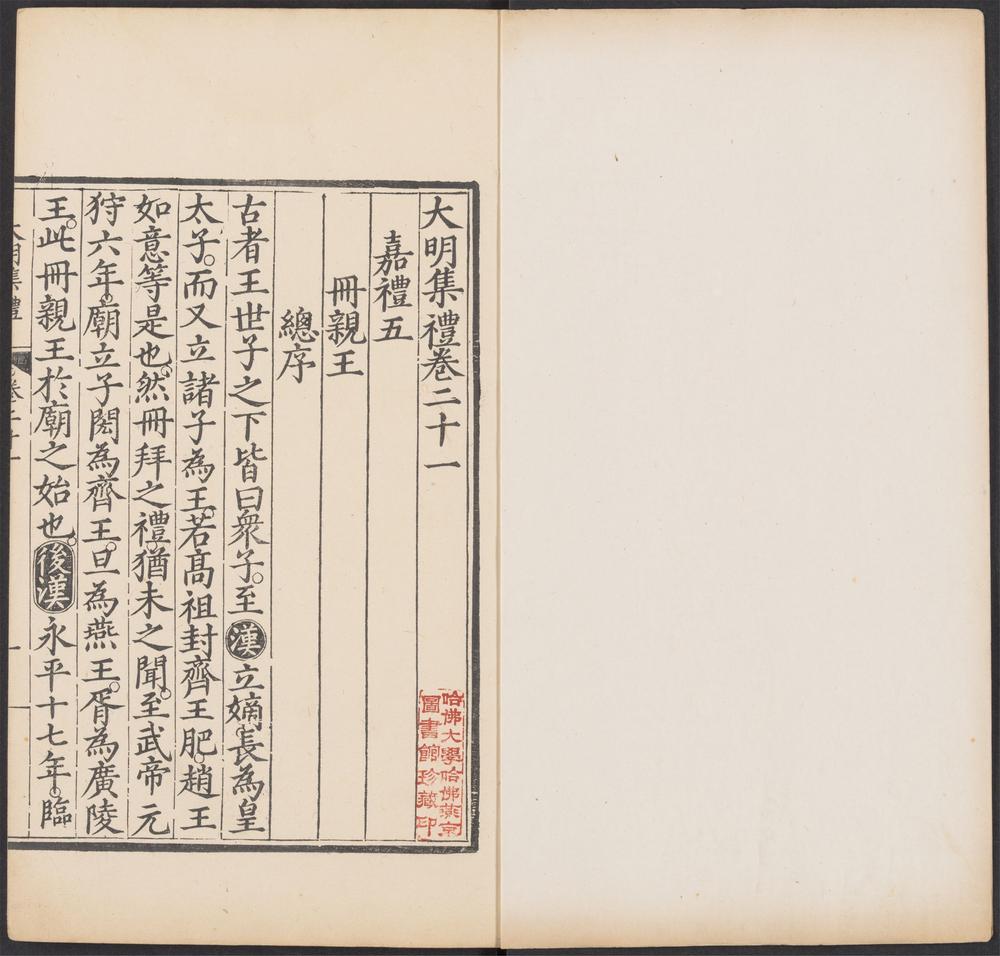 大明集禮卷二十一
嘉禮五
冊親王
總序
古者王世子之下皆曰衆子。至漢立嫡長為皇
太子。而又立諸子為王。若髙祖封齊王肥。趙王
如意等是也。然冊拜之禮。猶未之聞。至武帝元
狩六年。廟立子閎為齊王。旦為燕王。胥為廣陵
王。此冊親王於廟之始也。後漢永平十七年。臨
大明集禮 卷二十一 一
哈佛大學哈佛燕京
圖書館珍藏印